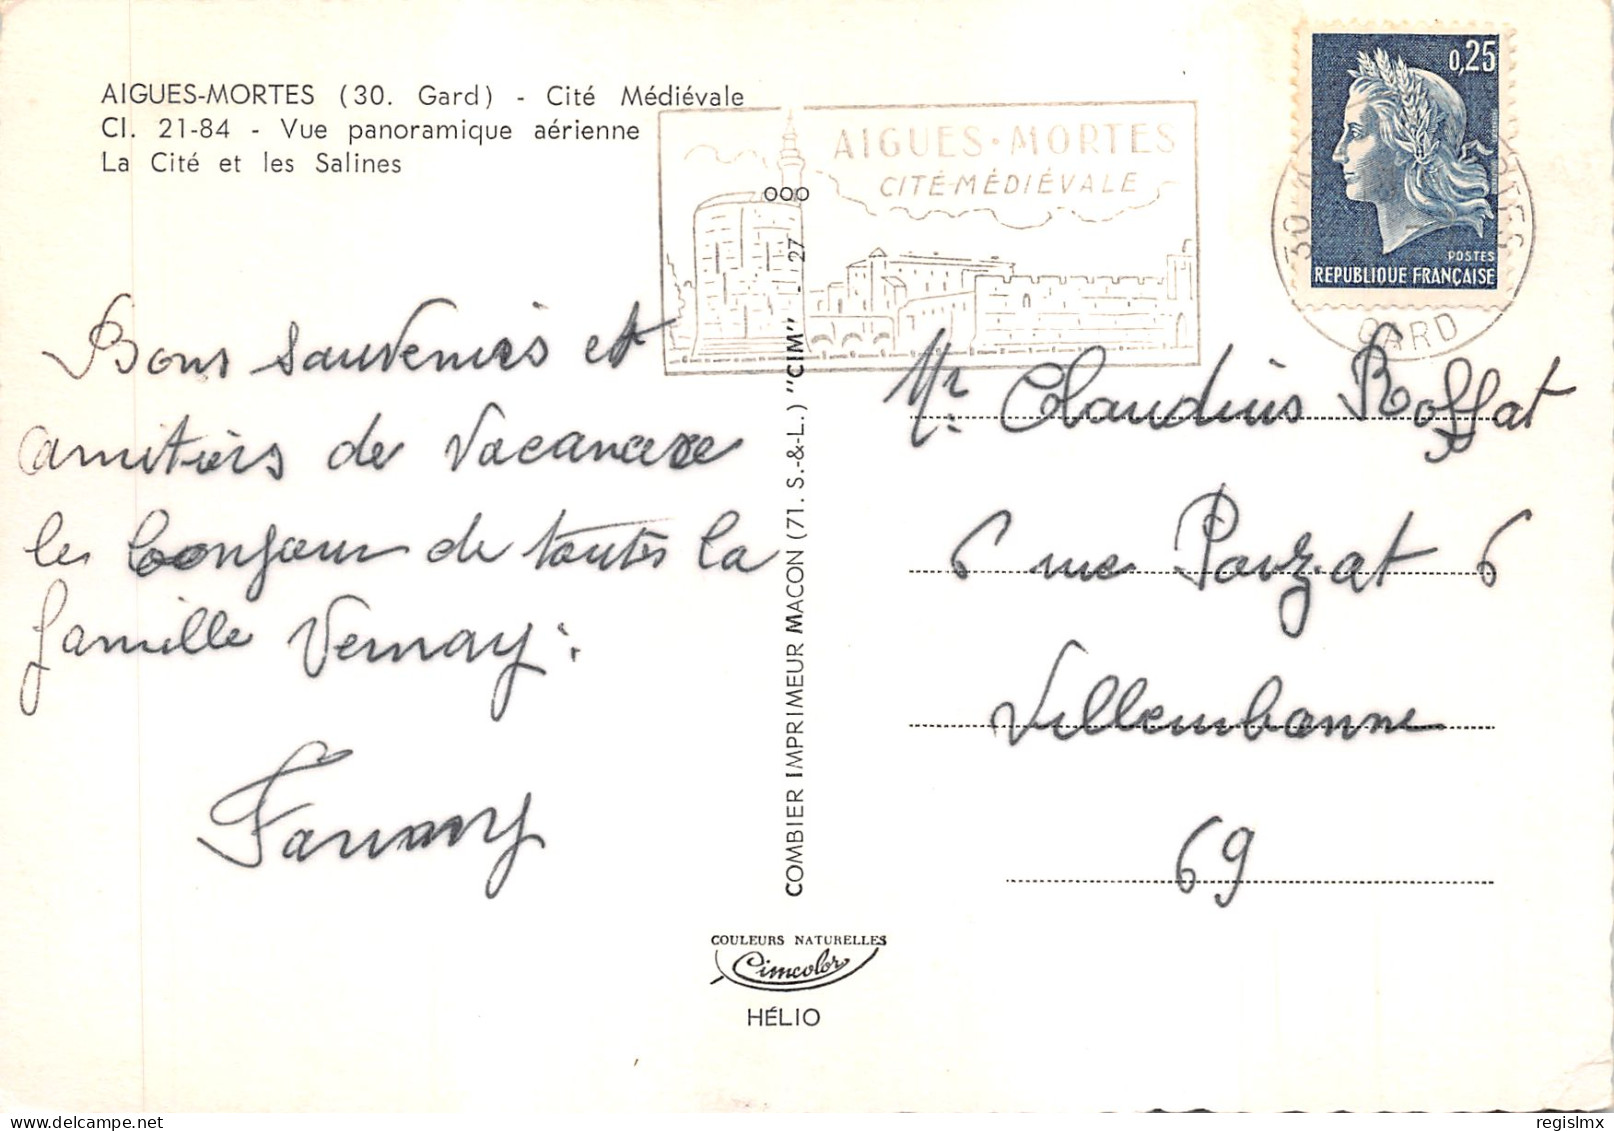 AIGUES-MORTES (30. Gard) - Cité Médiévale
CI. 21-84 - Vue panoramique aérienne
La Cité et les Salines
AIGUES-MORTES
CITÉ MÉDIÉVALE
0,25
POSTES
REPUBLIQUE FRANÇAISE
30
GARD
Bons souvenirs et
amitiérs de Vacances
les bonjour de toutes la
famille Vernay.
Fanny
COMBIER IMPRIMEUR MACON (71. S.-&-L.) "CIM" - 27
Mr Claudius Roffat
6 rue Pouzat 6
Villeurbanne
69
COULEURS NATURELLES
Cimcolor
HÉLIO
delcampe.net
regislmx